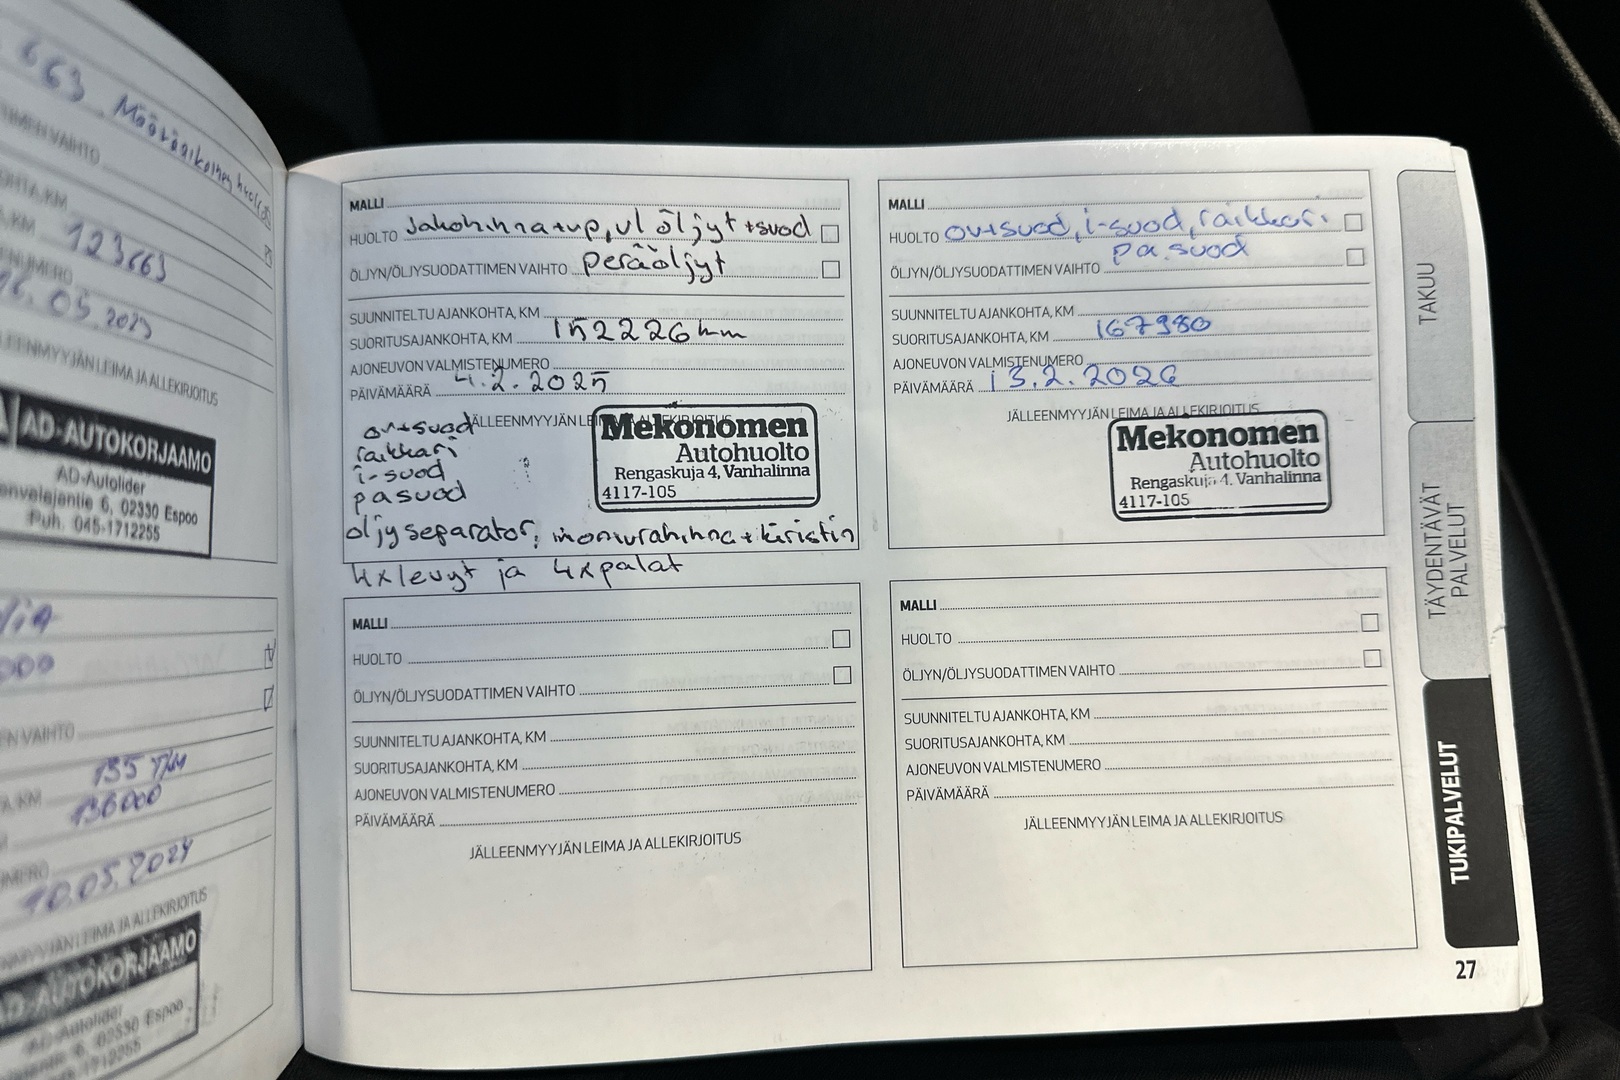 663 Määräaikainen huolto
123663
16.05.2023
JÄLLEENMYYJÄN LEIMA JA ALLEKIRJOITUS
AD-AUTOKORJAAMO
AD-Autolider
6, 02330 Espoo
Puh. 045-1712255
VAIHTO
135 TKM
136000
10.05.2024
JA ALLEKIRJOITUS
AD-AUTOKORJAAMO
AD-Autolider
6, 02330 Espoo
1712255
MALLI
HUOLTO Jakohihna+vp, vl öljyt+suod
ÖLJYN/ÖLJYSUODATTIMEN VAIHTO peräöljyt
SUUNNITELTU AJANKOHTA, KM
SUORITUSAJANKOHTA, KM 152226 km
AJONEUVON VALMISTENUMERO
PÄIVÄMÄÄRÄ 4.2.2025
JÄLLEENMYYJÄN LEIMA JA ALLEKIRJOITUS
öv+suod
raikkari
i-suod
pa suod
öljyseparator, moniurahihna+kiristin
4x levyt ja 4x palat
Mekonomen
Autohuolto
Rengaskuja 4, Vanhalinna
4117-105
MALLI
HUOLTO öv+suod, i-suod, raikkari
pa.suod
ÖLJYN/ÖLJYSUODATTIMEN VAIHTO
SUUNNITELTU AJANKOHTA, KM
SUORITUSAJANKOHTA, KM 167980
AJONEUVON VALMISTENUMERO
PÄIVÄMÄÄRÄ 13.2.2026
JÄLLEENMYYJÄN LEIMA JA ALLEKIRJOITUS
Mekonomen
Autohuolto
Rengaskuja 4, Vanhalinna
4117-105
MALLI
HUOLTO
ÖLJYN/ÖLJYSUODATTIMEN VAIHTO
SUUNNITELTU AJANKOHTA, KM
SUORITUSAJANKOHTA, KM
AJONEUVON VALMISTENUMERO
PÄIVÄMÄÄRÄ
JÄLLEENMYYJÄN LEIMA JA ALLEKIRJOITUS
MALLI
HUOLTO
ÖLJYN/ÖLJYSUODATTIMEN VAIHTO
SUUNNITELTU AJANKOHTA, KM
SUORITUSAJANKOHTA, KM
AJONEUVON VALMISTENUMERO
PÄIVÄMÄÄRÄ
JÄLLEENMYYJÄN LEIMA JA ALLEKIRJOITUS
TAKUU
TÄYDENTÄVÄT
PALVELUT
TUKIPALVELUT
27